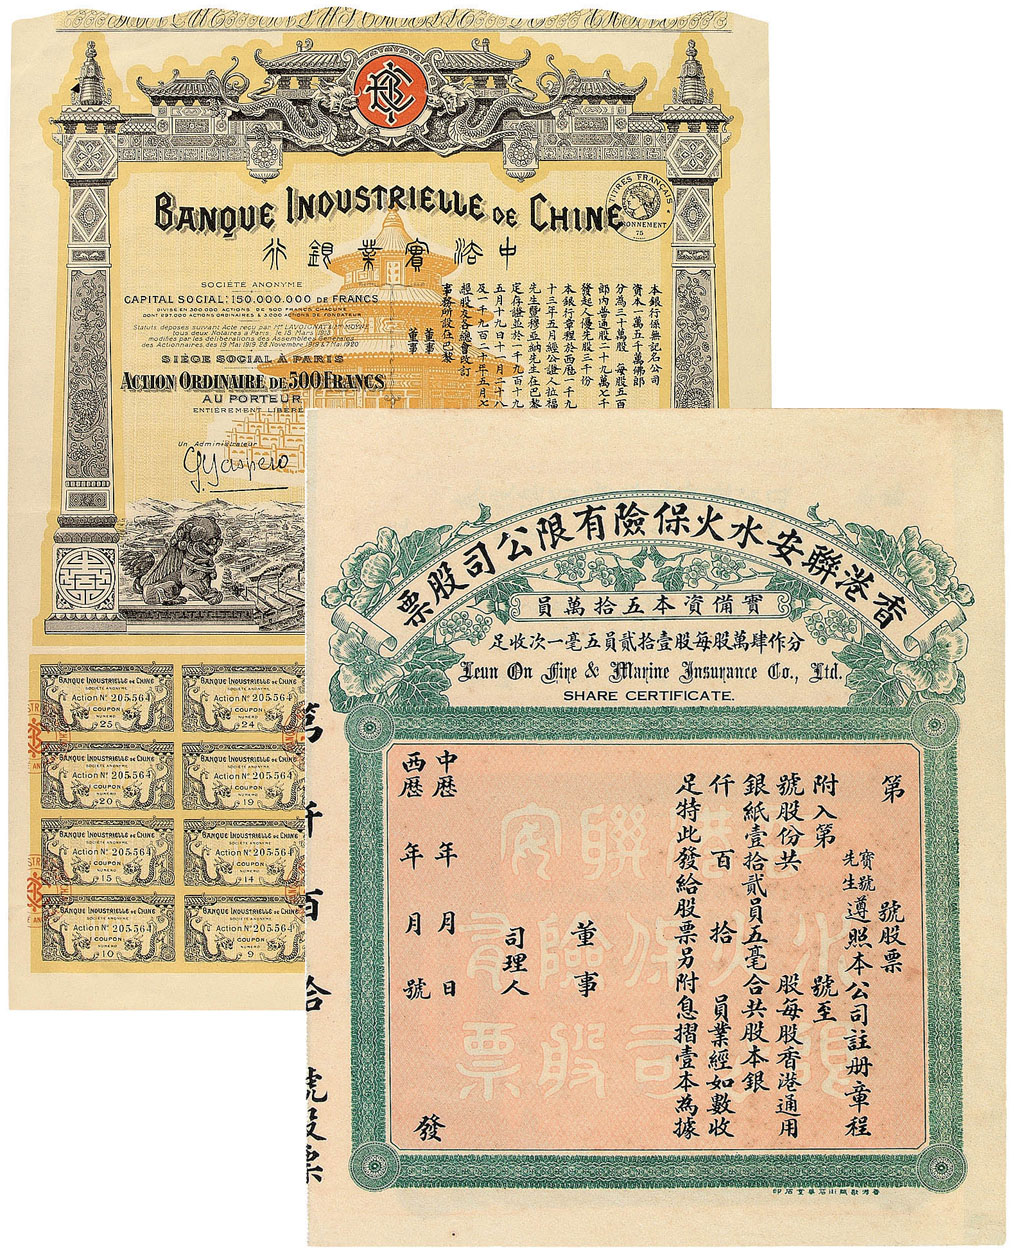 BANQUE INDUSTRIELLE DE CHINE
TITRES FRANÇAIS
75
中法實業銀行
SOCIÉTÉ ANONYME
CAPITAL SOCIAL: 150.000.000 DE FRANCS
DIVISÉ EN 300.000 ACTIONS DE 500 FRANCS CHACUNE
DONT 297.000 ACTIONS ORDINAIRES & 3.000 ACTIONS DE FONDATEUR
Statuts déposés suivant Acte reçu par Me LAVOIGNAT & Me MOYNE
tous deux Notaires à Paris, le 18 Mars 1913
modifiés par les délibérations des Assemblées Générales
des Actionnaires des 19 Mai 1919 28 Novembre 1919 & 7 Mai 1920
SIÈGE SOCIAL À PARIS
ACTION ORDINAIRE DE 500 FRANCS
AU PORTEUR
ENTIÈREMENT LIBÉRÉE
Un Administrateur
本銀行係無記名公司
資本一萬五千萬佛郎
分為三十萬股每股五百
郎內普通股二十九萬七千
發起人優先股三千份
本銀行章程於西歷一千九
十三年五月經公證人拉福
先生曁穆亞納先生在巴黎
定存證並於一千九百十九
五月十九日十一月二十八
及一千九百二十年五月七
經股友各總會改訂
事務所設在巴黎
董事
董事
BANQUE INDUSTRIELLE DE CHINE
SOCIÉTÉ ANONYME
Action No 205.564
COUPON
NUMÉRO
25
BANQUE INDUSTRIELLE DE CHINE
SOCIÉTÉ ANONYME
Action No 205.564
COUPON
NUMÉRO
24
BANQUE INDUSTRIELLE DE CHINE
SOCIÉTÉ ANONYME
Action No 205.564
COUPON
NUMÉRO
20
BANQUE INDUSTRIELLE DE CHINE
SOCIÉTÉ ANONYME
Action No 205.564
COUPON
NUMÉRO
19
BANQUE INDUSTRIELLE DE CHINE
SOCIÉTÉ ANONYME
Action No 205.564
COUPON
NUMÉRO
15
BANQUE INDUSTRIELLE DE CHINE
SOCIÉTÉ ANONYME
Action No 205.564
COUPON
NUMÉRO
14
BANQUE INDUSTRIELLE DE CHINE
SOCIÉTÉ ANONYME
Action No 205.564
COUPON
NUMÉRO
10
BANQUE INDUSTRIELLE DE CHINE
SOCIÉTÉ ANONYME
Action No 205.564
COUPON
NUMÉRO
9
香港聯安水火保險有限公司股票
實備資本五拾萬員
分作肆萬股每股壹拾貳員五毫一次收足
Leun On Fire & Marine Insurance Co., Ltd.
SHARE CERTIFICATE.
第 號股票
寶號
先生 遵照本公司註册章程
附入第 號至
號股份共 股每股香港通用
銀紙壹拾貳員五毫合共股本銀
仟 百 拾 員業經如數收
足特此發給股票另附息摺壹本為據
董事
司理人
中歷 年 月 日
西歷 年 月 號 發
萬 仟 百 拾 號股票